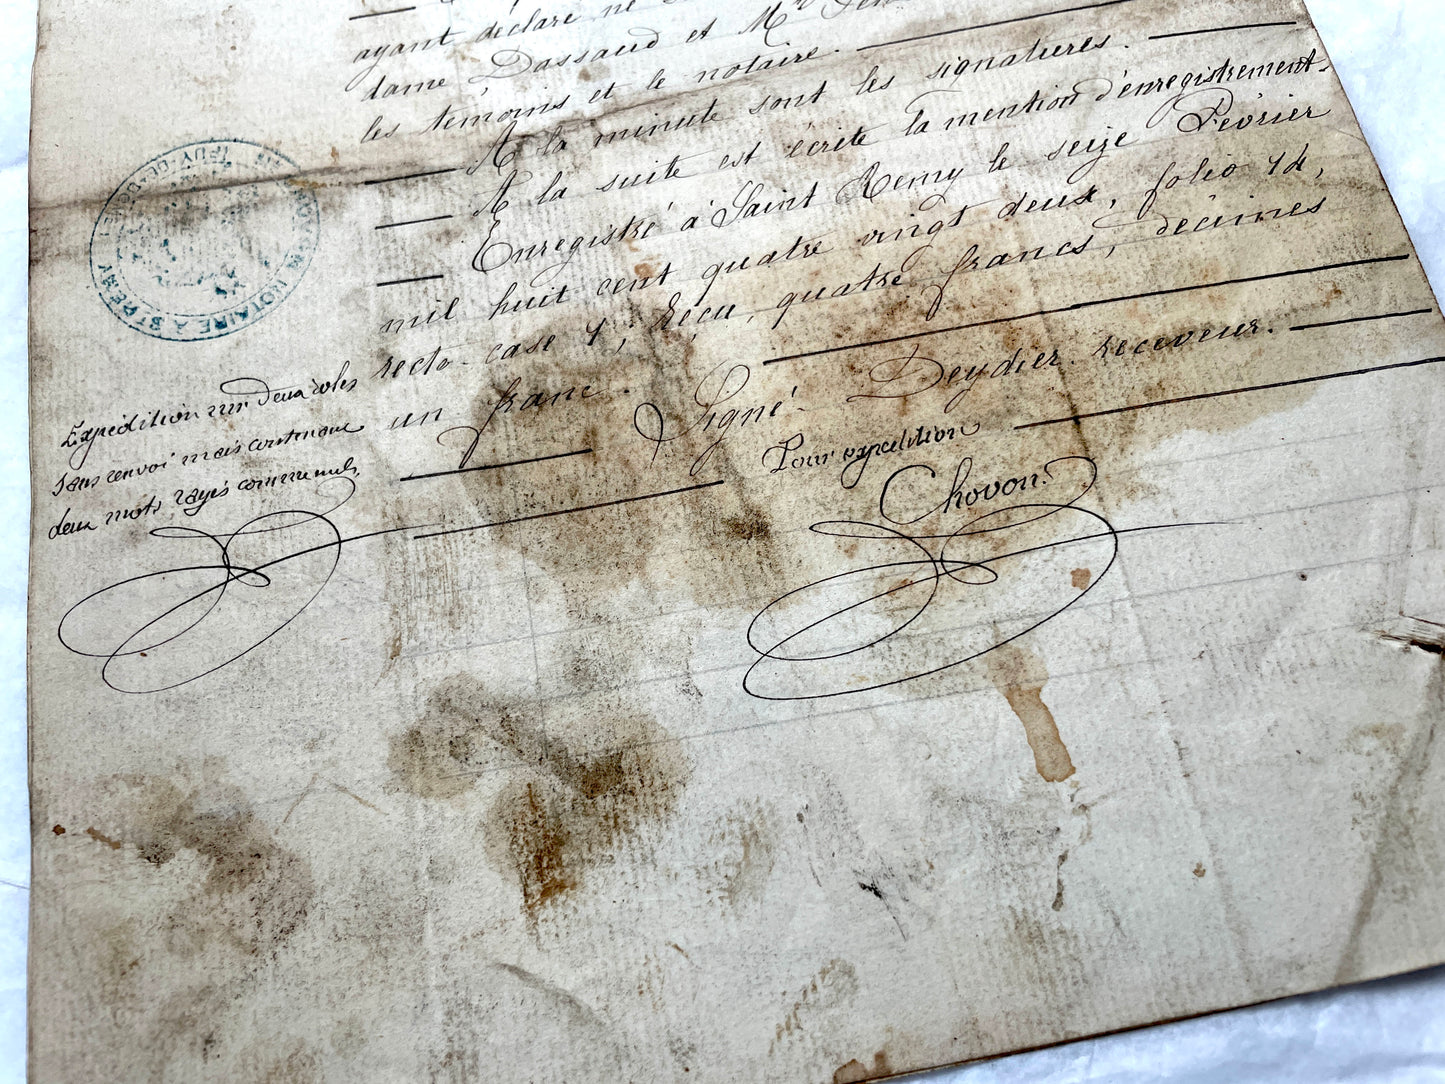 ayant declaré ne
dame Dassaud et Mr
les témoins et le notaire.
A la minute sont les signatures.
A la suite est écrite la mention d'enregistrement.
Enregistré à Saint Remy le seize Février
mil huit cent quatre vingt deux, folio 14,
recto case 7, Reçu, quatre francs, décimes
un franc.
Signé Deydier receveur.
Pour expédition
Chovon.
Expédition sur deux roles
sans renvoi mais contenant
deux mots rayés comme nuls.
NOTAIRE A ST REMY
PUY-DE-D